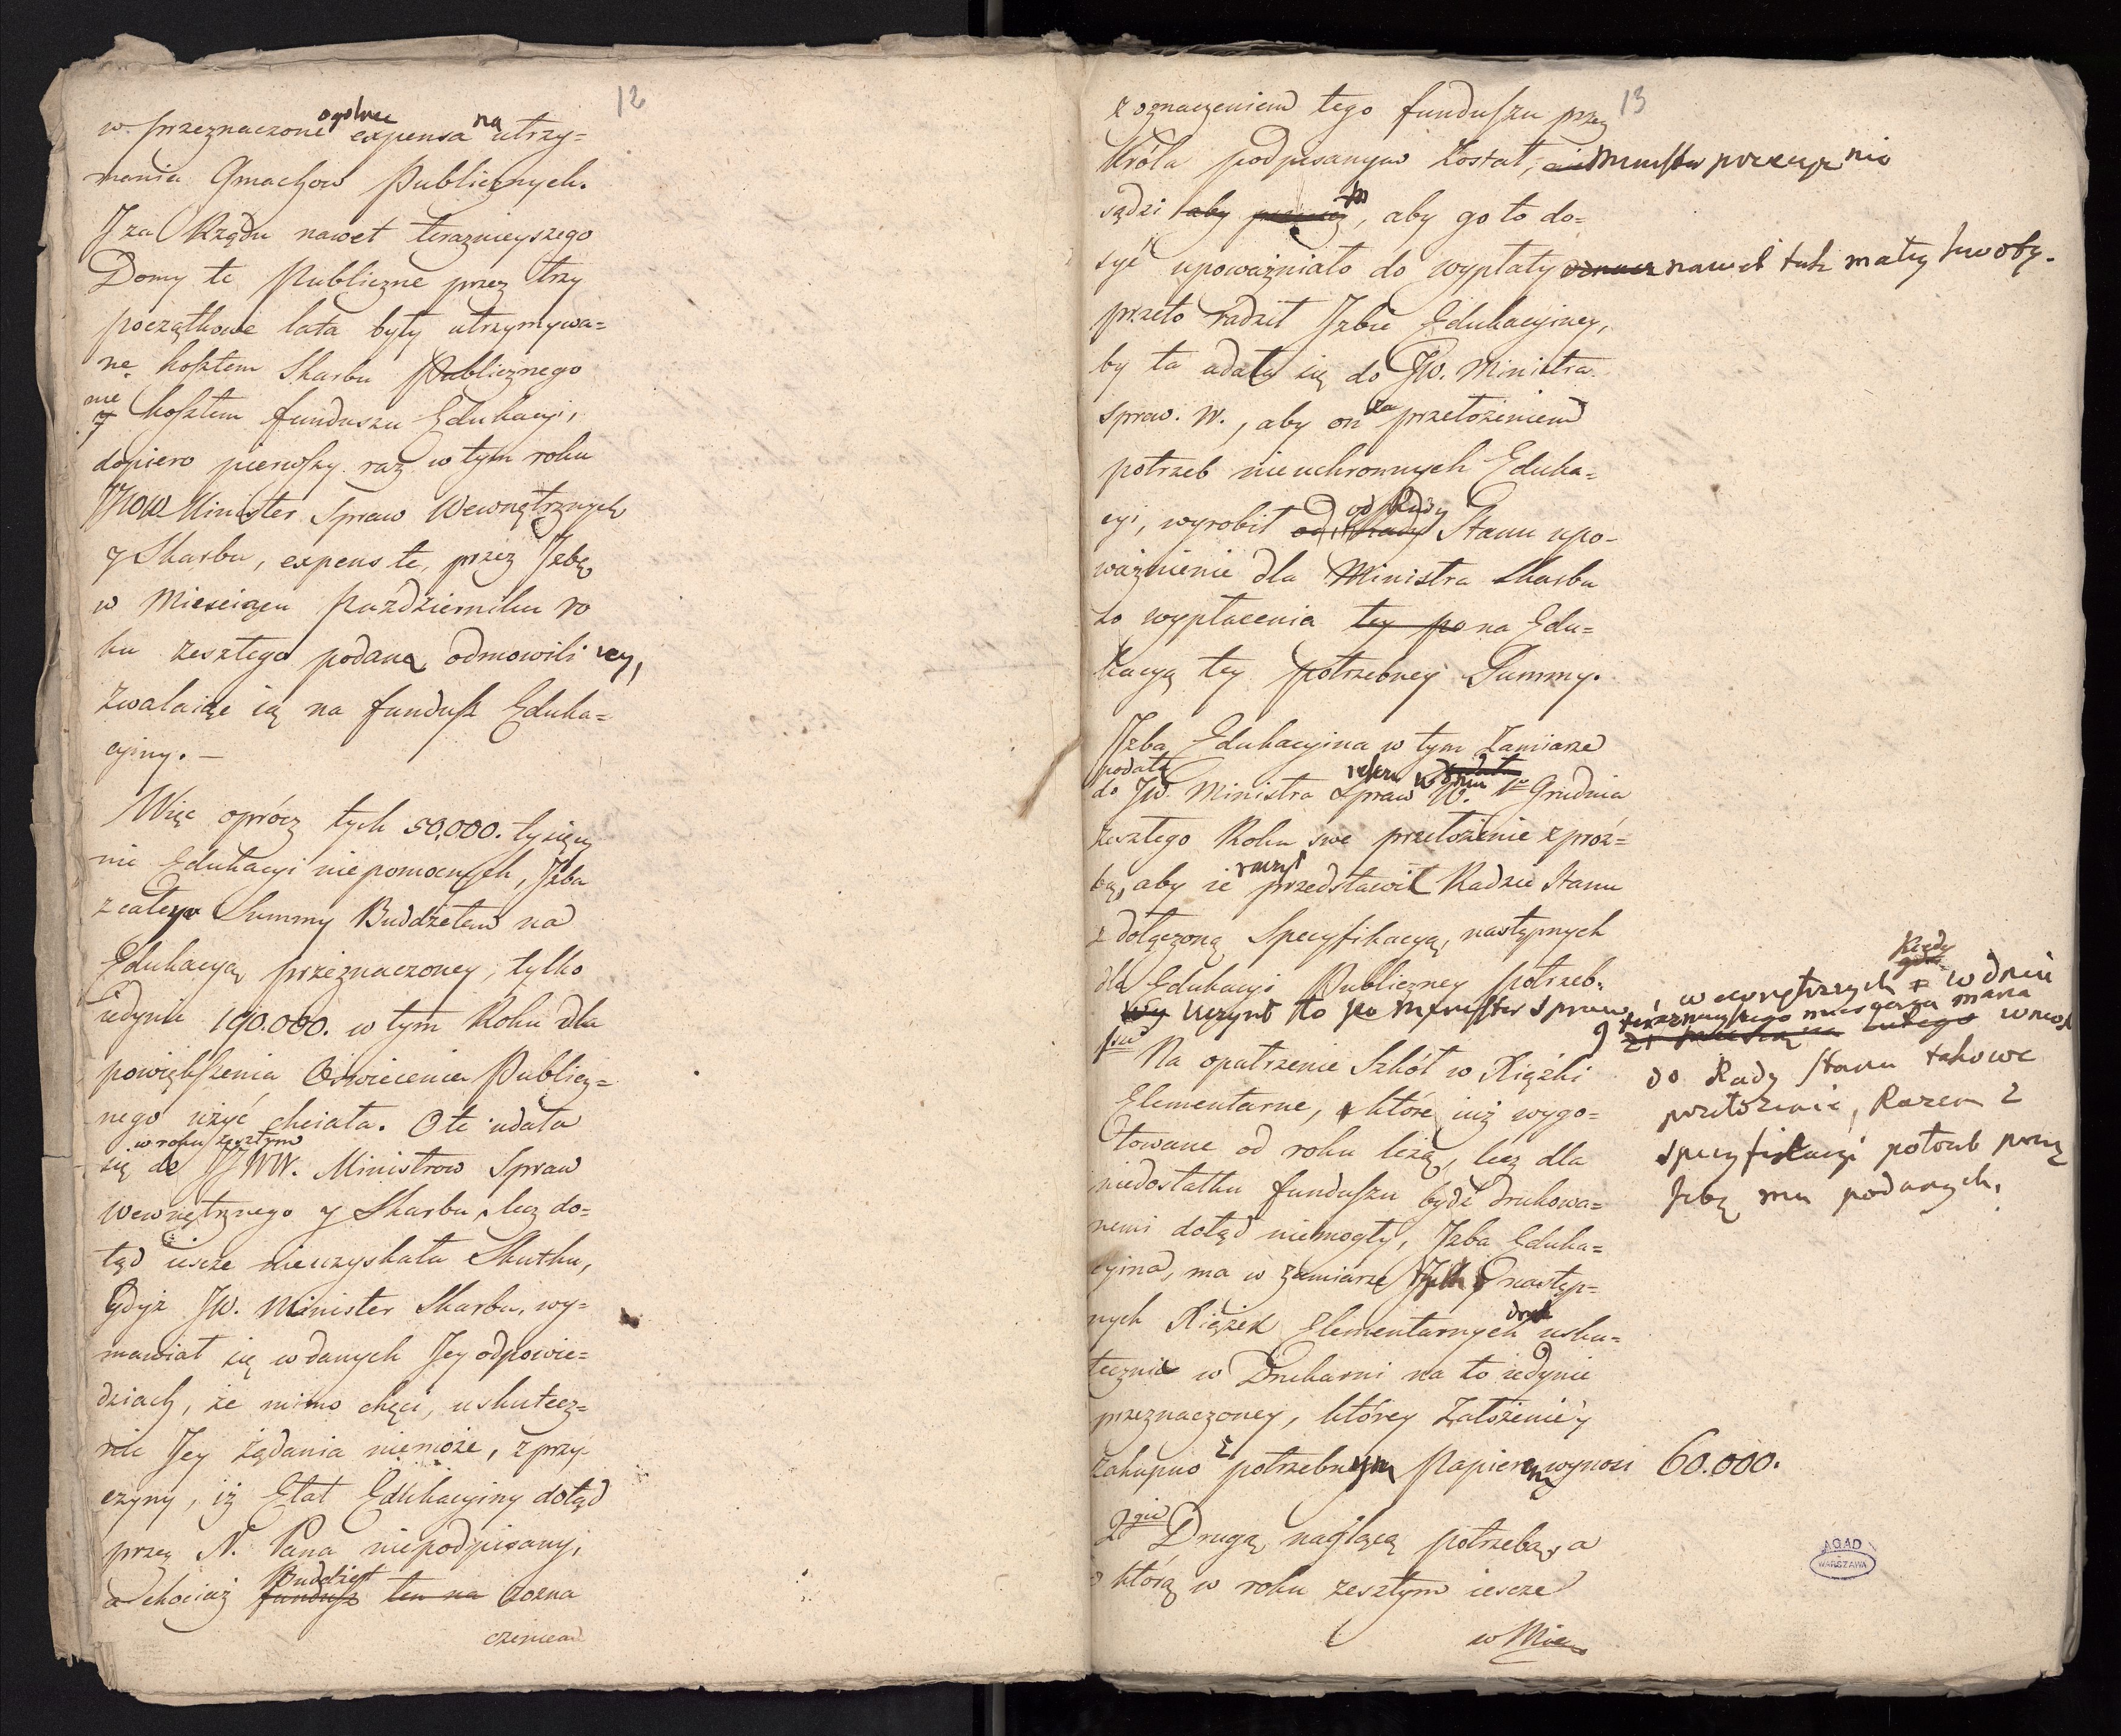 12
w przeznaczone ogólne expensa na utrzy=
mania Gmachow Publicznych.
I za Rządu nawet teraznieyszego
Domy te Publiczne przez trzy
początkowe lata były utrzymywa=
ne kosztem Skarbu Publicznego
nie kosztem funduszu Edukacyi,
dopiero pierwszy raz w tym roku
Minister Spraw Wewnętrznych
y Skarbu, expens te, przez Izbę
w Miesiącu Pazdzierniku ro
ku zeszłego podane odmowili iey,
zwalaiąc ią na fundusz Eduka=
cyiny. —
Więc oprócz tych 50,000. tysięcy
nic Edukacyi niepomocnych, Izba
z całey Summy Buddżetem na
Edukacyą przeznaczoney, tylko
iedynie 190.000. w tym Roku dla
powiększenia Oswiecenia Publicz=
nego użyć chciała. O te udała
w roku zeszłym
się do JJWW. Ministrow Spraw
Wewnętrznego y Skarbu, lecz do=
tąd iescze nieuzyskała Skutku,
Gdyż JW. Minister Skarbu, wy=
mawiał się w danych Jey odpowie=
dziach, że mimo chęci, uskutecz=
nic Jey żądania niemoże, z przy
czyny, iż Etat Edukacyiny dotąd
przez N. Pana niepodpisany,
Buddżet
a chociaż fundusz ten na zozna
czeniem
13
z oznaczeniem tego funduszu przez
Króla podpisanym został, Minister nie
sądzi aby, aby go to do=
syć upoważniało do wypłaty nawet tak małey kwoty.
przeto radził Izbie Edukacyiney,
by ta udała się do JW. Ministra
Spraw. W., aby on za przełożeniem
potrzeb nieuchronnych Eduka=
cyi, wyrobił od Rady Stanu upo=
ważnienie dla Ministra Skarbu
do wypłacenia tey po na Edu=
kacyą tey potrzebney Summy.
Izba Edukacyina w tym Zamiarze
podała
do JW. Ministra Spraw W. w dniu 1o Grudnia
zeszłego Roku swe przełożenie z proź=
bą, aby ie raczył przedstawić Radzie Stanu
z dołączoną Specyfikacyą, następnych
dla Edukacyi Publiczney potrzeb.
uczynił to JW Minister Spraw wewnętrznych kiedy w dniu
9 teraznieyszego miesiąca marca wniosł
do Rady Stanu takowe
przełożenie, Razem z
specyfikacyi potrzeb przez
Izbę mu podanych.
1sze Na opatrzenie Szkół w Xiążki
Elementarne, które iuż wygo=
towane od roku leżą, lecz dla
niedostatku funduszu bydź drukowa=
nemi dotąd niemogły, Izba Eduka=
cyina, ma w zamiarze tych następ=
nych Xiążek Elementarnych druk usku=
tecznić w Drukarni na to iedynie
przeznaczoney, którey Założenie y
zakupno z potrzebnym Papierem wynosi 60.000.
2gie Drugą naglącą potrzebą, a
o którą w roku zeszłym iescze
AGAD
WARSZAWA